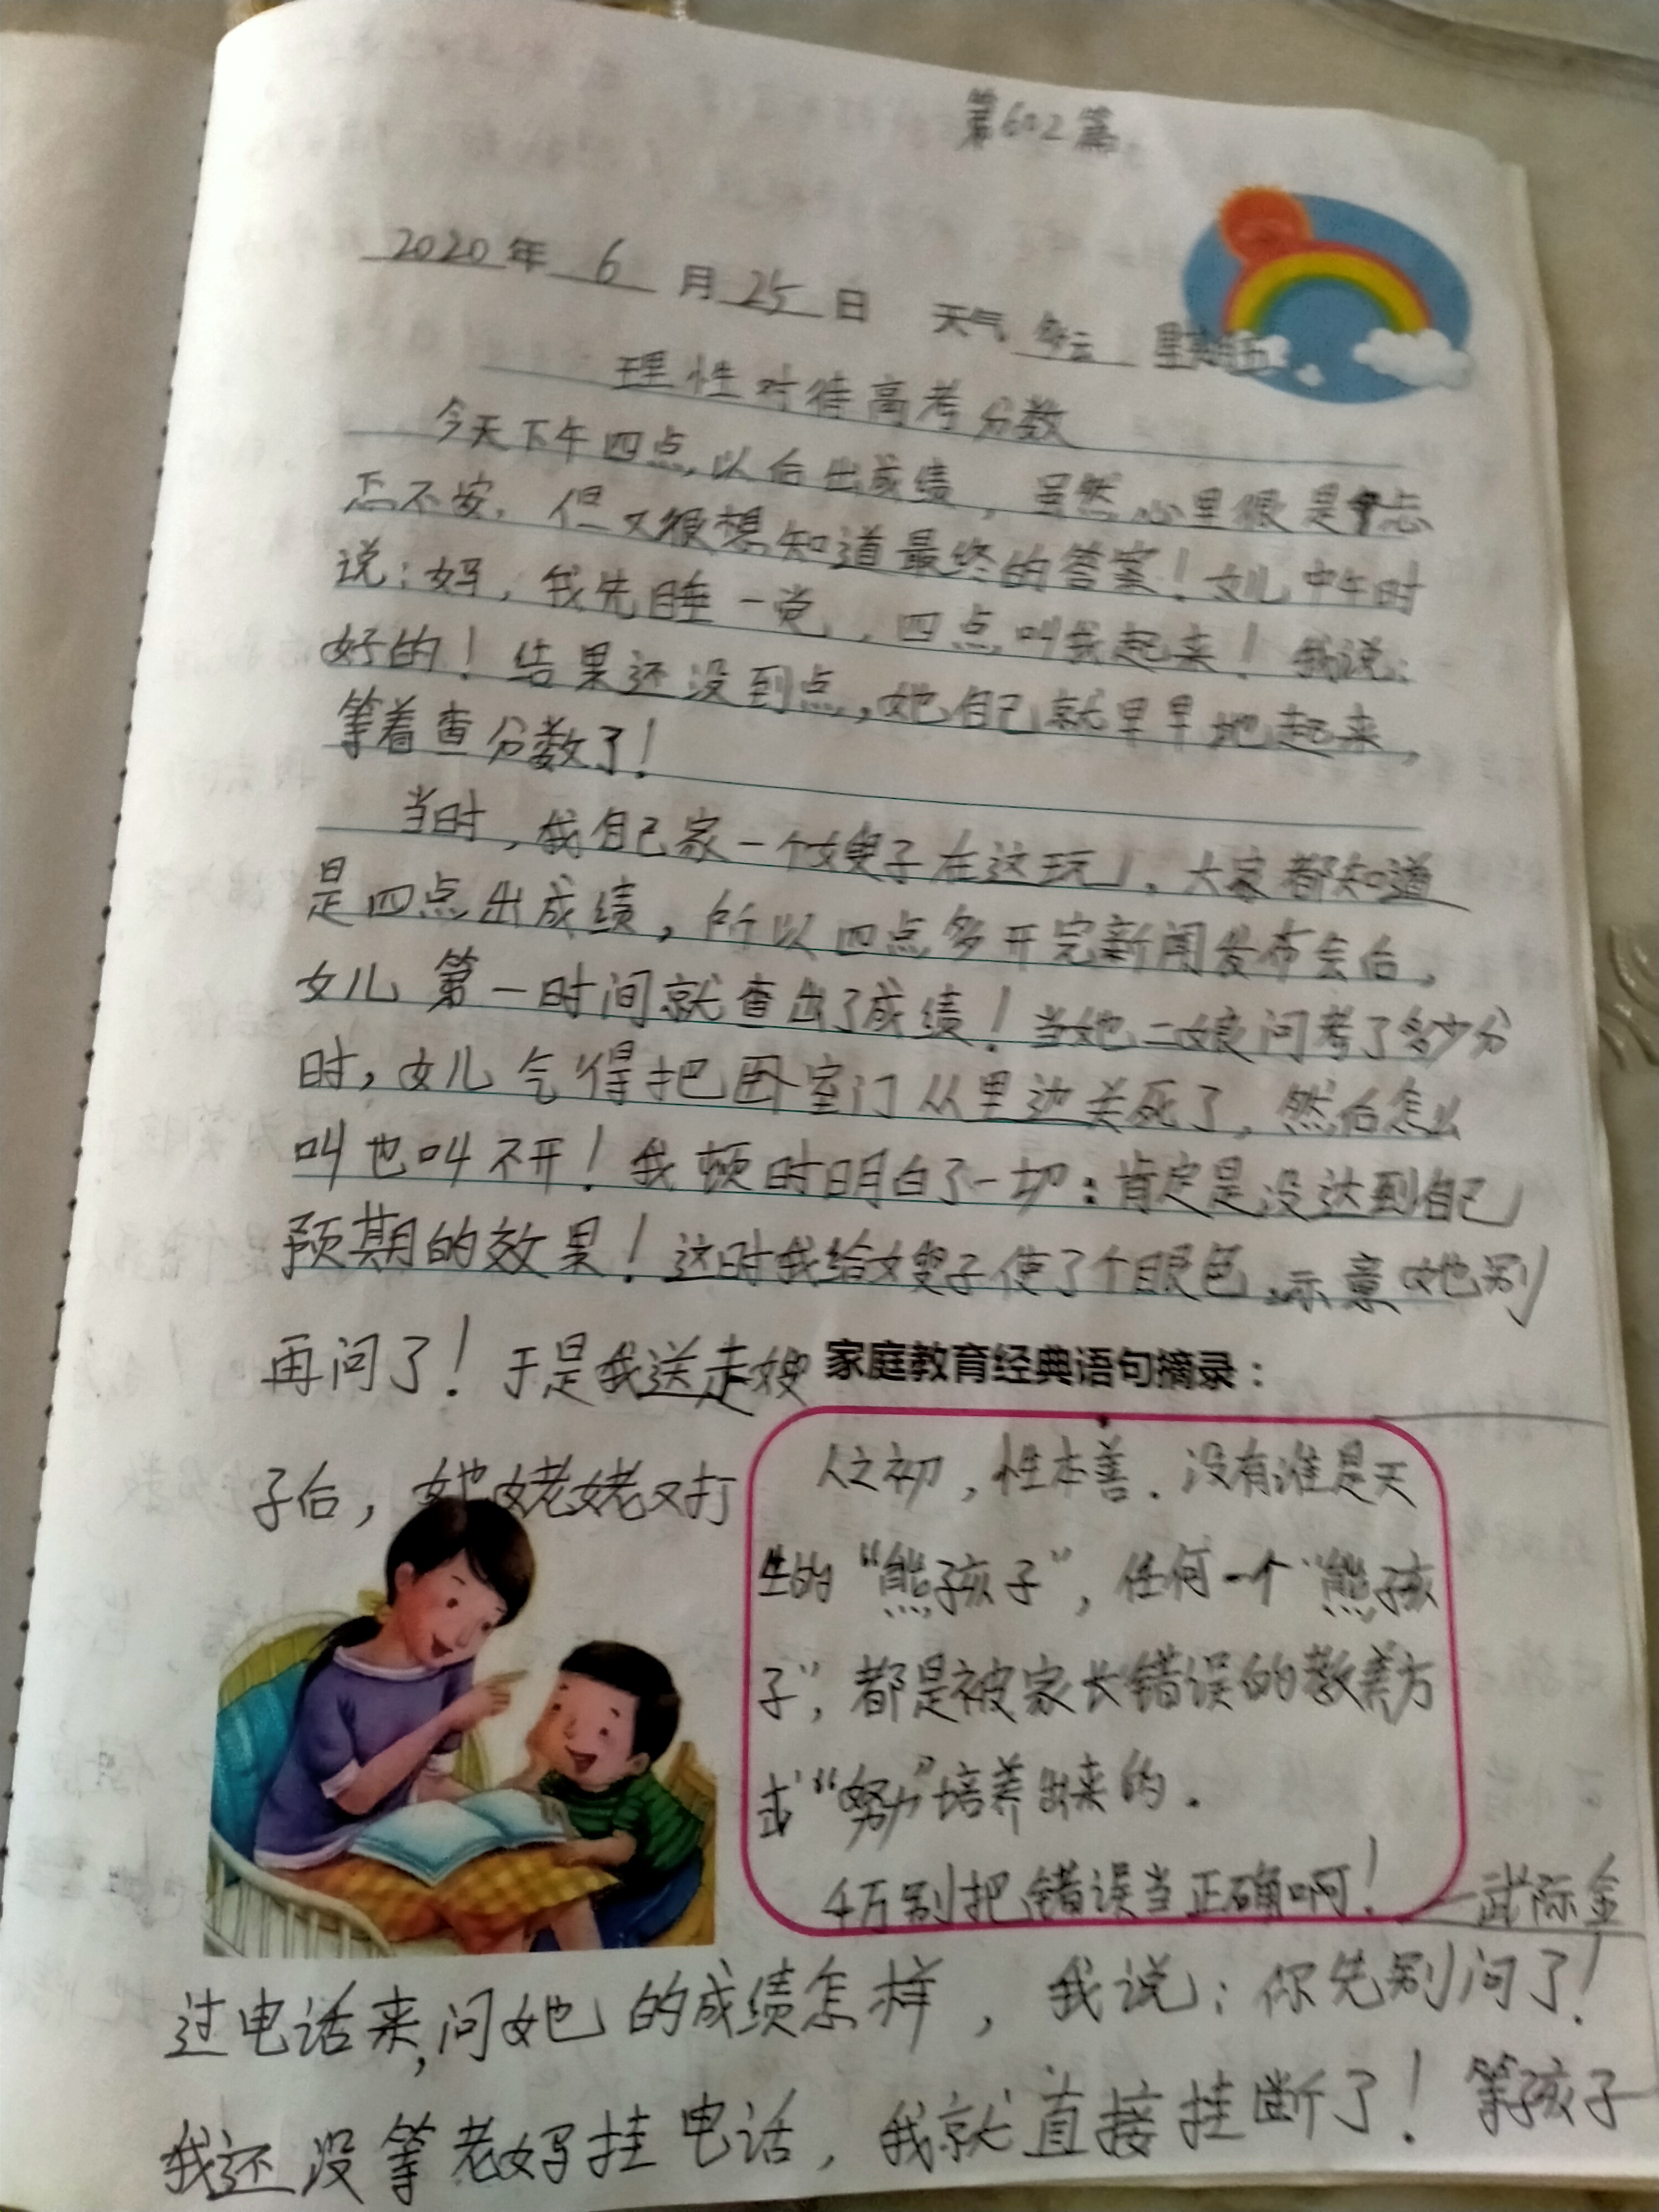 第602篇
2020年 6 月 25 日 天气 多云 星期五
理性对待高考分数
今天下午四点以后出成绩，虽然心里很是忐
忑不安，但又很想知道最终的答案！女儿中午时
说：妈，我先睡一觉，四点叫我起来！我说：
好的！结果还没到点，她自己就早早地起来，
等着查分数了！
当时，我自己家一个嫂子在这玩，大家都知道
是四点出成绩，所以四点多开完新闻发布会后，
女儿第一时间就查出了成绩！当她二娘问考了多少分
时，女儿气得把卧室门从里边关死了，然后怎么
叫也叫不开！我顿时明白了一切：肯定是没达到自己
预期的效果！这时我给嫂子使了个眼色，示意她别
再问了！于是我送走嫂
子后，她姥姥又打
家庭教育经典语句摘录：
人之初，性本善．没有谁是天
生的“熊孩子”，任何一个“熊孩
子”，都是被家长错误的教养方
式“努力”培养出来的．
千万别把错误当正确啊！——武际金
过电话来，问她的成绩怎样，我说：你先别问了！
我还没等老妈挂电话，我就直接挂断了！等孩子